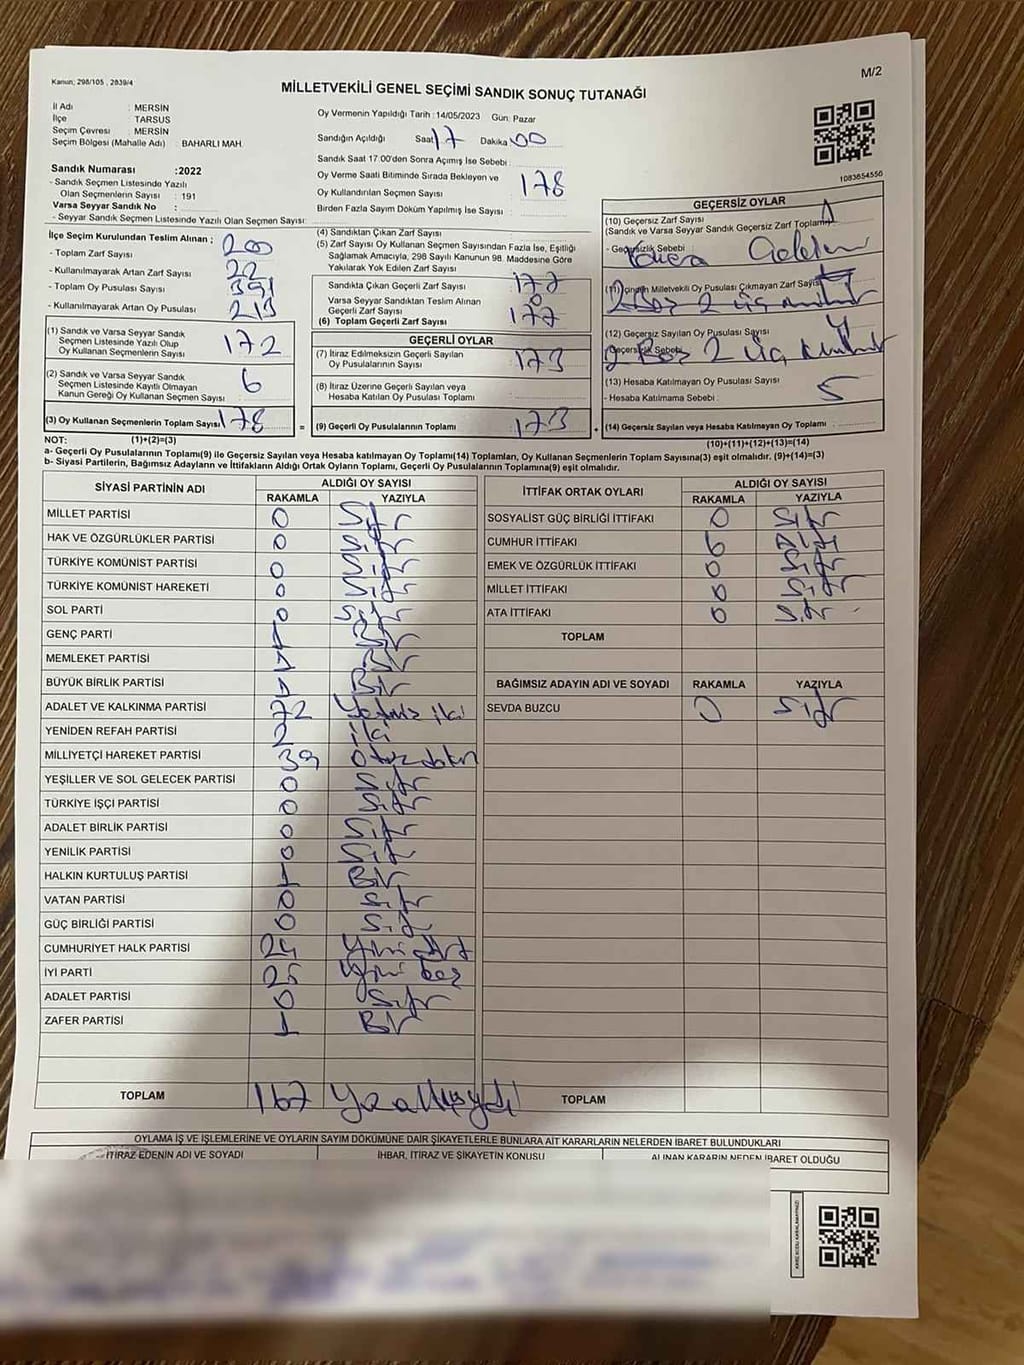 Kanun; 298/105 , 2839/4
M/2
MİLLETVEKİLİ GENEL SEÇİMİ SANDIK SONUÇ TUTANAĞI
İl Adı : MERSİN
İlçe : TARSUS
Seçim Çevresi : MERSİN
Seçim Bölgesi (Mahalle Adı) : BAHARLI MAH.
Sandık Numarası :2022
- Sandık Seçmen Listesinde Yazılı
Olan Seçmenlerin Sayısı : 191
Varsa Seyyar Sandık No :
- Seyyar Sandık Seçmen Listesinde Yazılı Olan Seçmen Sayısı:
Oy Vermenin Yapıldığı Tarih : 14/05/2023 Gün: Pazar
Sandığın Açıldığı Saat 17 Dakika 00
Sandık Saat 17.00'den Sonra Açımış İse Sebebi :
Oy Verme Saati Bitiminde Sırada Bekleyen ve
Oy Kullandırılan Seçmen Sayısı 178
Birden Fazla Sayım Döküm Yapılmış İse Sayısı :
1083654550
İlçe Seçim Kurulundan Teslim Alınan :
- Toplam Zarf Sayısı 200
- Kullanılmayarak Artan Zarf Sayısı 22
- Toplam Oy Pusulası Sayısı 391
- Kullanılmayarak Artan Oy Pusulası 213
(1) Sandık ve Varsa Seyyar Sandık
Seçmen Listesinde Yazılı Olup
Oy Kullanan Seçmenlerin Sayısı 172
(2) Sandık ve Varsa Seyyar Sandık
Seçmen Listesinde Kayıtlı Olmayan
Kanun Gereği Oy Kullanan Seçmen Sayısı : 6
(3) Oy Kullanan Seçmenlerin Toplam Sayısı 178
(4) Sandıktan Çıkan Zarf Sayısı
(5) Zarf Sayısı Oy Kullanan Seçmen Sayısından Fazla İse, Eşitliği
Sağlamak Amacıyla, 298 Sayılı Kanunun 98. Maddesine Göre
Yakılarak Yok Edilen Zarf Sayısı
Sandıkta Çıkan Geçerli Zarf Sayısı 177
Varsa Seyyar Sandıktan Teslim Alınan
Geçerli Zarf Sayısı 0
(6) Toplam Geçerli Zarf Sayısı 177
GEÇERLİ OYLAR
(7) İtiraz Edilmeksizin Geçerli Sayılan
Oy Pusulalarının Sayısı 173
(8) İtiraz Üzerine Geçerli Sayılan veya
Hesaba Katılan Oy Pusulası Toplamı
= (9) Geçerli Oy Pusulalarının Toplamı 173
GEÇERSİZ OYLAR
(10) Geçersiz Zarf Sayısı 1
(Sandık ve Varsa Seyyar Sandık Geçersiz Zarf Toplamı)
- Geçersizlik Sebebi
(11) İçinden Milletvekili Oy Pusulası Çıkmayan Zarf Sayısı
2 Boş 2 üç mühür
(12) Geçersiz Sayılan Oy Pusulası Sayısı 4
Geçersizlik Sebebi 2 Boş 2 üç mühür
(13) Hesaba Katılmayan Oy Pusulası Sayısı 5
- Hesaba Katılmama Sebebi :
+ (14) Geçersiz Sayılan veya Hesaba Katılmayan Oy Toplamı
NOT: (1)+(2)=(3) (10)+(11)+(12)+(13)=(14)
a- Geçerli Oy Pusulalarının Toplamı(9) ile Geçersiz Sayılan veya Hesaba katılmayan Oy Toplamı(14) Toplamları, Oy Kullanan Seçmenlerin Toplam Sayısına(3) eşit olmalıdır. (9)+(14)=(3)
b- Siyasi Partilerin, Bağımsız Adayların ve İttifakların Aldığı Ortak Oyların Toplamı, Geçerli Oy Pusulalarının Toplamına(9) eşit olmalıdır.
SİYASİ PARTİNİN ADI ALDIĞI OY SAYISI
RAKAMLA YAZIYLA
MİLLET PARTİSİ 0 Sıfır
HAK VE ÖZGÜRLÜKLER PARTİSİ 0 Sıfır
TÜRKİYE KOMÜNİST PARTİSİ 0 Sıfır
TÜRKİYE KOMÜNİST HAREKETİ 0 Sıfır
SOL PARTİ 0 Sıfır
GENÇ PARTİ 1 Bir
MEMLEKET PARTİSİ 1 Bir
BÜYÜK BİRLİK PARTİSİ 1 Bir
ADALET VE KALKINMA PARTİSİ 72 Yetmiş iki
YENİDEN REFAH PARTİSİ 2 iki
MİLLİYETÇİ HAREKET PARTİSİ 39 Otuz dokuz
YEŞİLLER VE SOL GELECEK PARTİSİ 0 Sıfır
TÜRKİYE İŞÇİ PARTİSİ 0 Sıfır
ADALET BİRLİK PARTİSİ 0 Sıfır
YENİLİK PARTİSİ 0 Sıfır
HALKIN KURTULUŞ PARTİSİ 1 Bir
VATAN PARTİSİ 0 Sıfır
GÜÇ BİRLİĞİ PARTİSİ 0 Sıfır
CUMHURİYET HALK PARTİSİ 24 Yirmi dört
İYİ PARTİ 25 Yirmi beş
ADALET PARTİSİ 0 Sıfır
ZAFER PARTİSİ 1 Bir
TOPLAM 167 Yüzaltmışyedi
İTTİFAK ORTAK OYLARI ALDIĞI OY SAYISI
RAKAMLA YAZIYLA
SOSYALİST GÜÇ BİRLİĞİ İTTİFAKI 0 Sıfır
CUMHUR İTTİFAKI 6 Altı
EMEK VE ÖZGÜRLÜK İTTİFAKI 0 Sıfır
MİLLET İTTİFAKI 0 Sıfır
ATA İTTİFAKI 0 Sıfır
TOPLAM
BAĞIMSIZ ADAYIN ADI VE SOYADI RAKAMLA YAZIYLA
SEVDA BUZCU 0 Sıfır
TOPLAM
OYLAMA İŞ VE İŞLEMLERİNE VE OYLARIN SAYIM DÖKÜMÜNE DAİR ŞİKAYETLERLE BUNLARA AİT KARARLARIN NELERDEN İBARET BULUNDUKLARI
İTİRAZ EDENİN ADI VE SOYADI İHBAR, İTİRAZ VE ŞİKAYETİN KONUSU ALINAN KARARIN NEDEN İBARET OLDUĞU